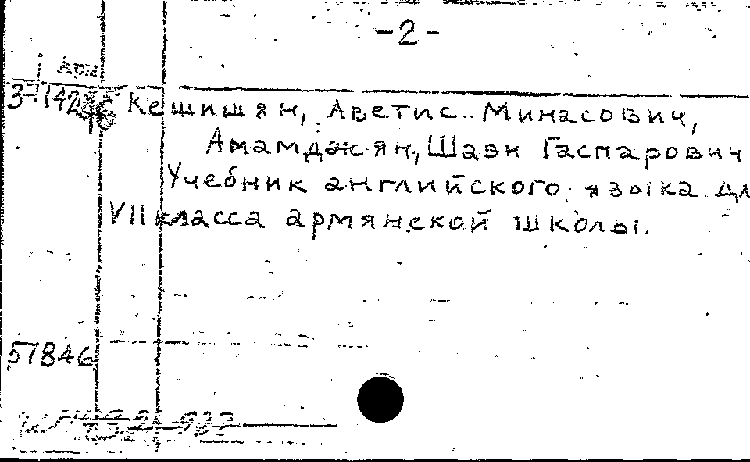 -2-
Арм
3-14246 Кешишян, Аветис Минасович,
Амамджян, Шаэн Гаспарович
Учебник английского языка дл
VII класса армянской школы.
57846